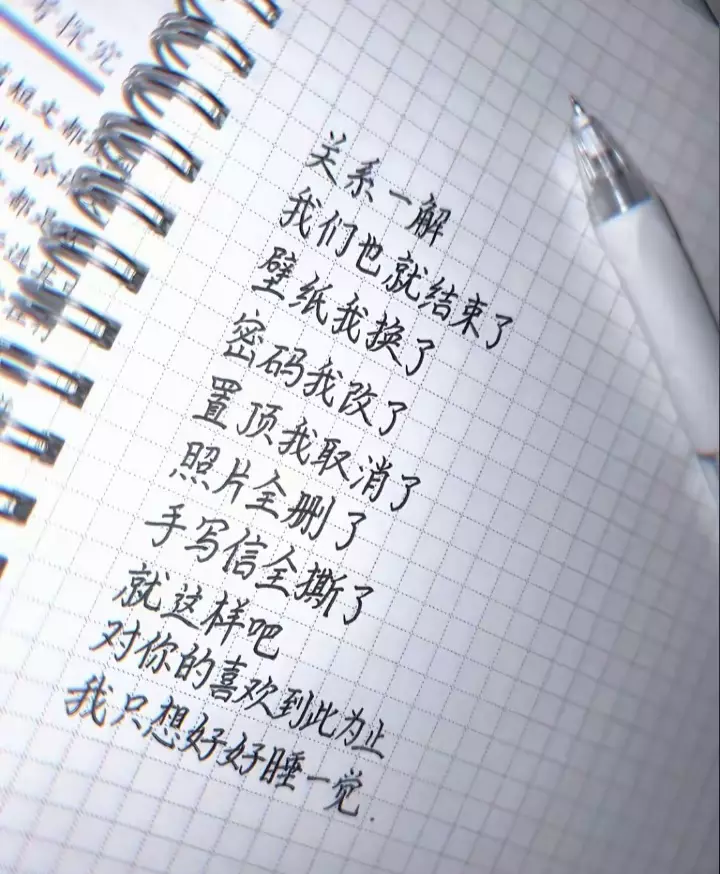 关系一解
我们也就结束了
壁纸我换了
密码我改了
置顶我取消了
照片全删了
手写信全撕了
就这样吧
对你的喜欢到此为止
我只想好好睡一觉.